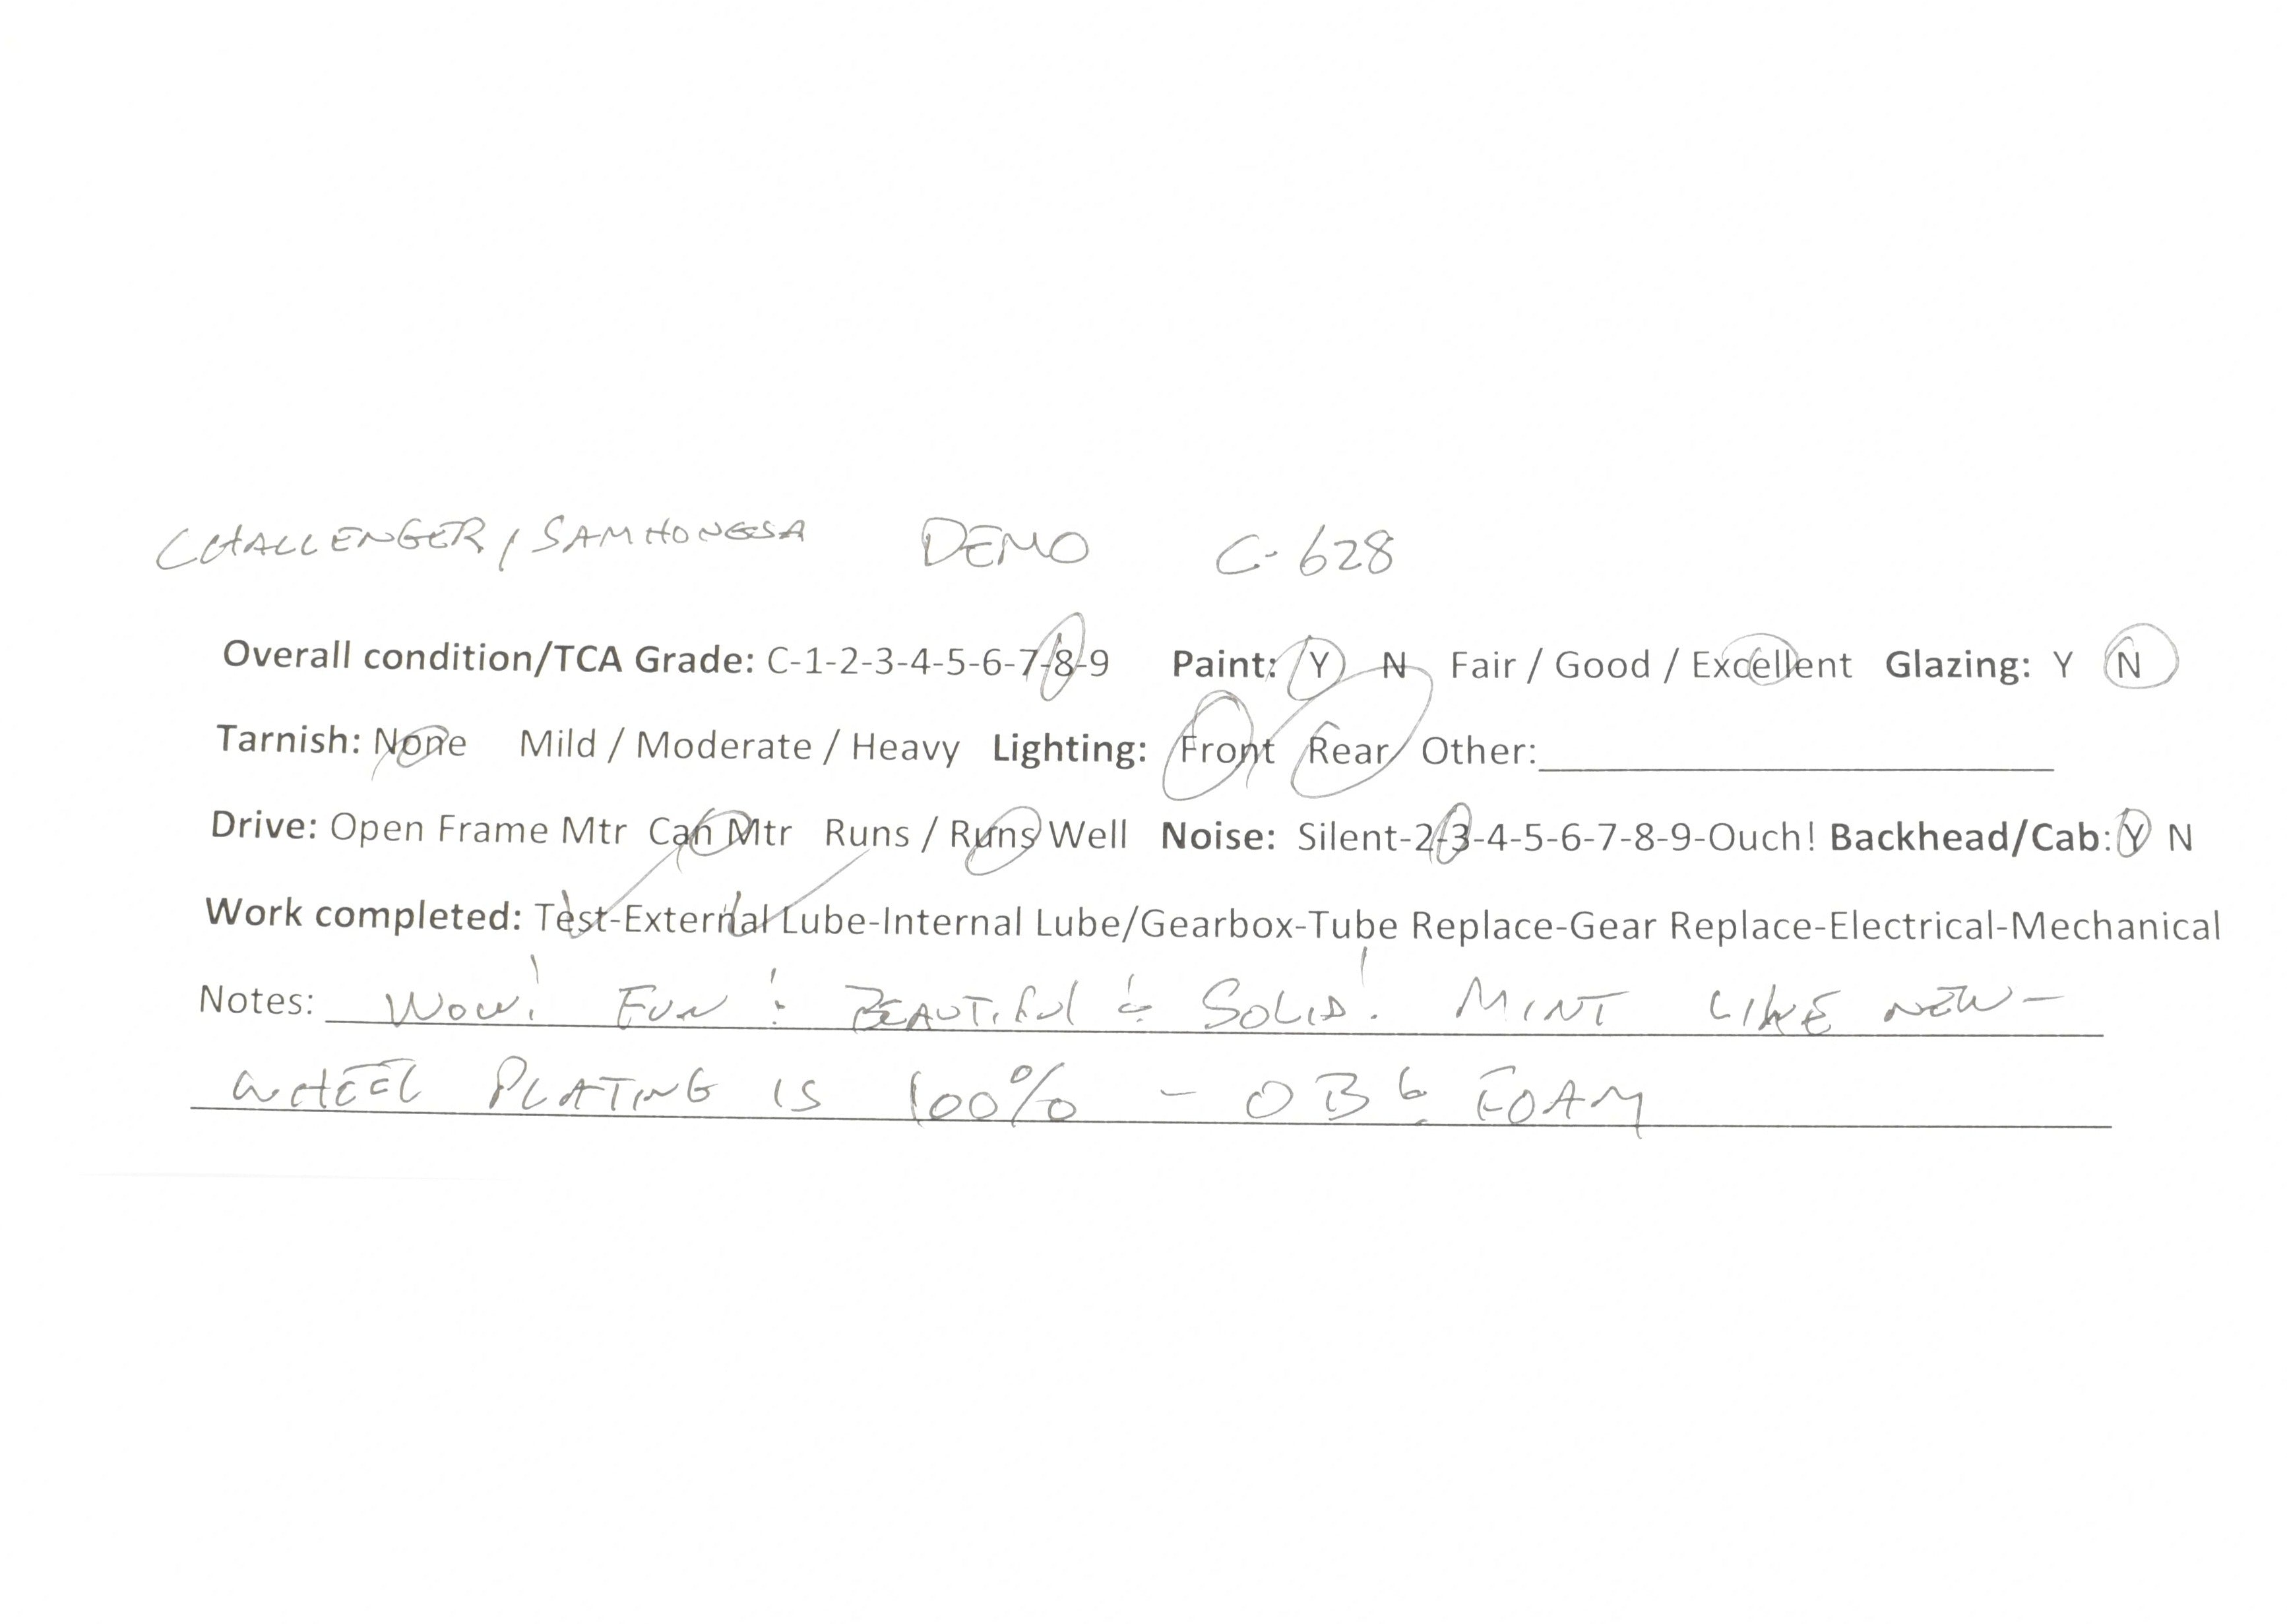 CHALLENGER / SAMHONGSA DEMO C-628
Overall condition/TCA Grade: C-1-2-3-4-5-6-7-8-9 Paint: Y N Fair / Good / Excellent Glazing: Y N
Tarnish: None Mild / Moderate / Heavy Lighting: Front Rear Other:
Drive: Open Frame Mtr Can Mtr Runs / Runs Well Noise: Silent-2-3-4-5-6-7-8-9-Ouch! Backhead/Cab: Y N
Work completed: Test-External Lube-Internal Lube/Gearbox-Tube Replace-Gear Replace-Electrical-Mechanical
Notes: WOW! FUN! BEAUTIFUL & SOLID! MINT LIKE NEW-
WHEEL PLATING IS 100% - OB & FOAM